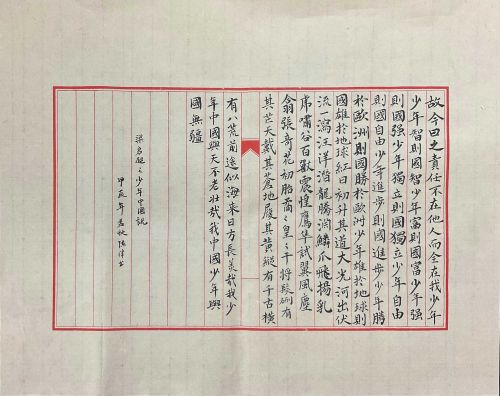 故今日之責任不在他人而全在我少年
少年智則國智少年富則國富少年強
則國強少年獨立則國獨立少年自由
則國自由少年進步則國進步少年勝
於歐洲則國勝於歐洲少年雄於地球則
國雄於地球紅日初升其道大光河出伏
流一瀉汪洋潛龍騰淵鱗爪飛揚乳
虎嘯谷百獸震惶鷹隼試翼風塵
翕張奇花初胎矞矞皇皇干將發硎有
其芒天戴其蒼地履其黃縱有千古橫
有八荒前途似海來日方長美哉我少
年中國與天不老壯哉我中國少年與
國無疆
梁啟超之少年中國說
甲辰年